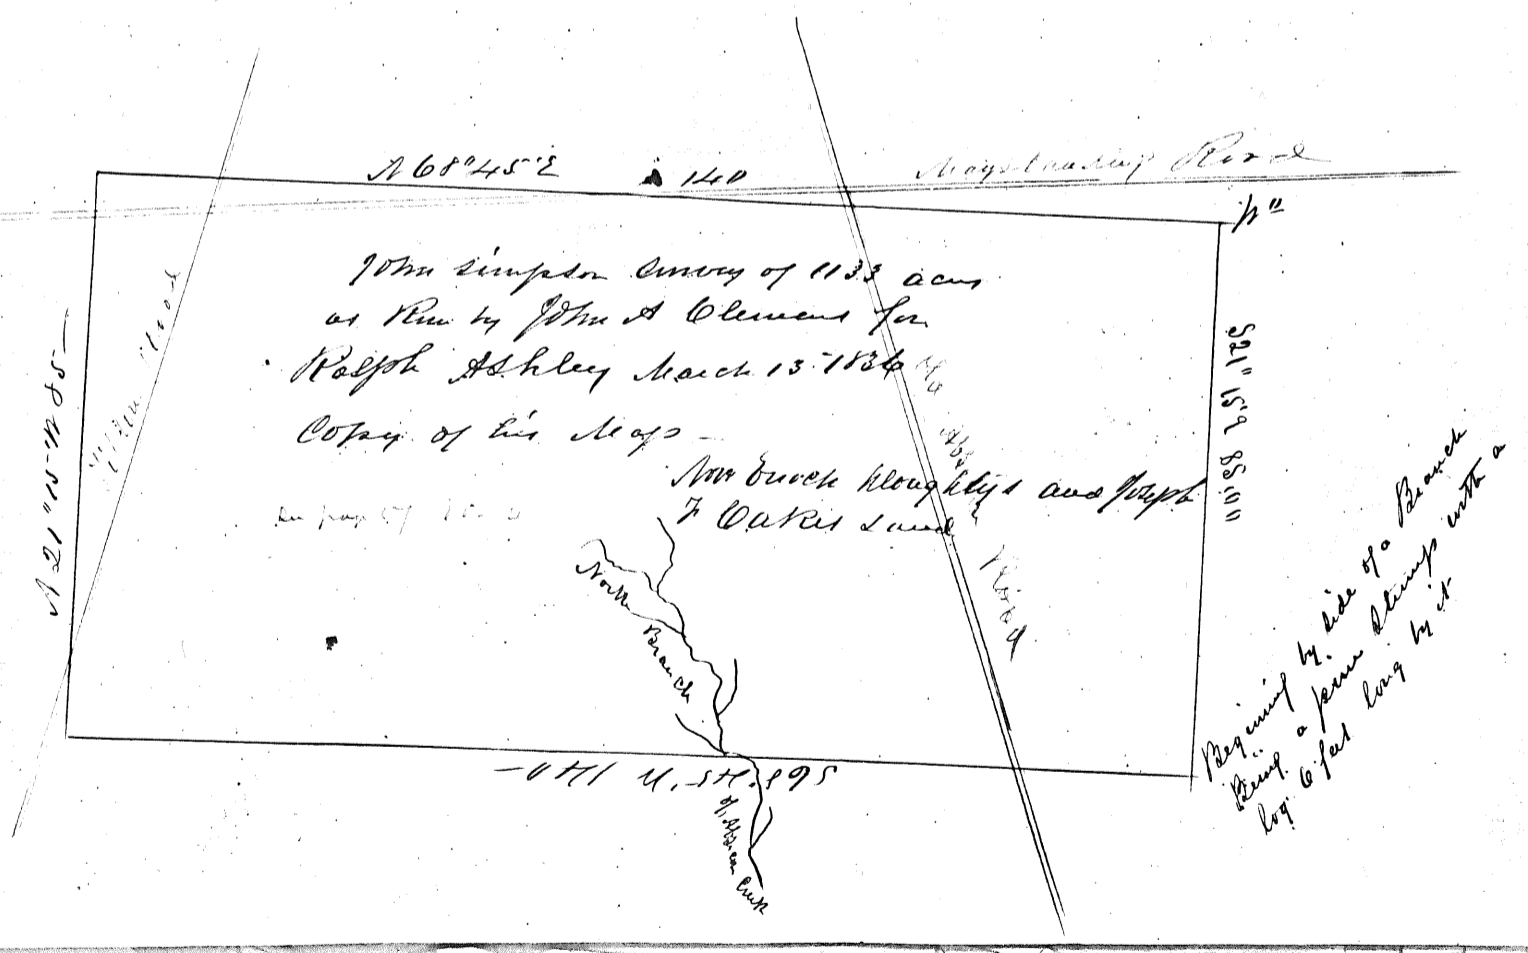 N 68° 45' E 140
Mays Landing Road
John Simpson Survey of 1133 acres
as Run by John A Clement for
Ralph Ashley March 13- 1836
Copy of his Map -
Now Enoch and Joseph
F Oakes Land
N 21° 15' W 85 -
S 21° 15' E 85.00
S 68° 45' W 140 -
Road
Road
North
Branch
of Atsion Creek
Begining by side of a Branch
Being a pine stump with a
log 6 feet long by it